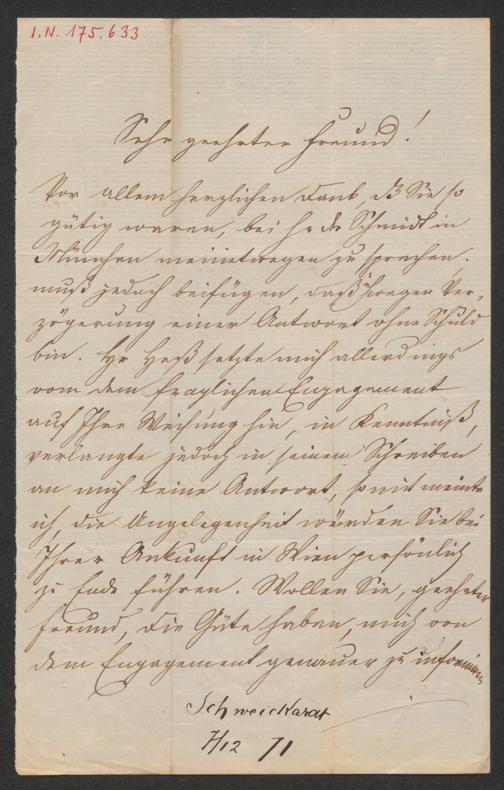 I.N. 175.633
Sehr geehrter Freund!
Vor allem herzlichen Dank, dß Sie so
gütig waren, bei H. Dr Schmidt in
München meinetwegen zu sprechen.
muß jedoch beifügen, daß ich wegen Ver-
zögerung einer Antwort ohne Schuld
bin. Hr Heß setzte mich allerdings
vom dem fraglichen Engagement
auf Ihre Weisung hin, in Kenntniß,
verlangte jedoch in seinem Schreiben
an mich keine Antwort, somit meinte
ich die Angelegenheit würden Sie bei
Ihrer Ankunft in Wien persönlich
zu Ende führen. Wollen Sie, geehrter
Freund, die Güte haben, mich von
dem Engagement genauer zu informiren
Schweickardt
7/12 71